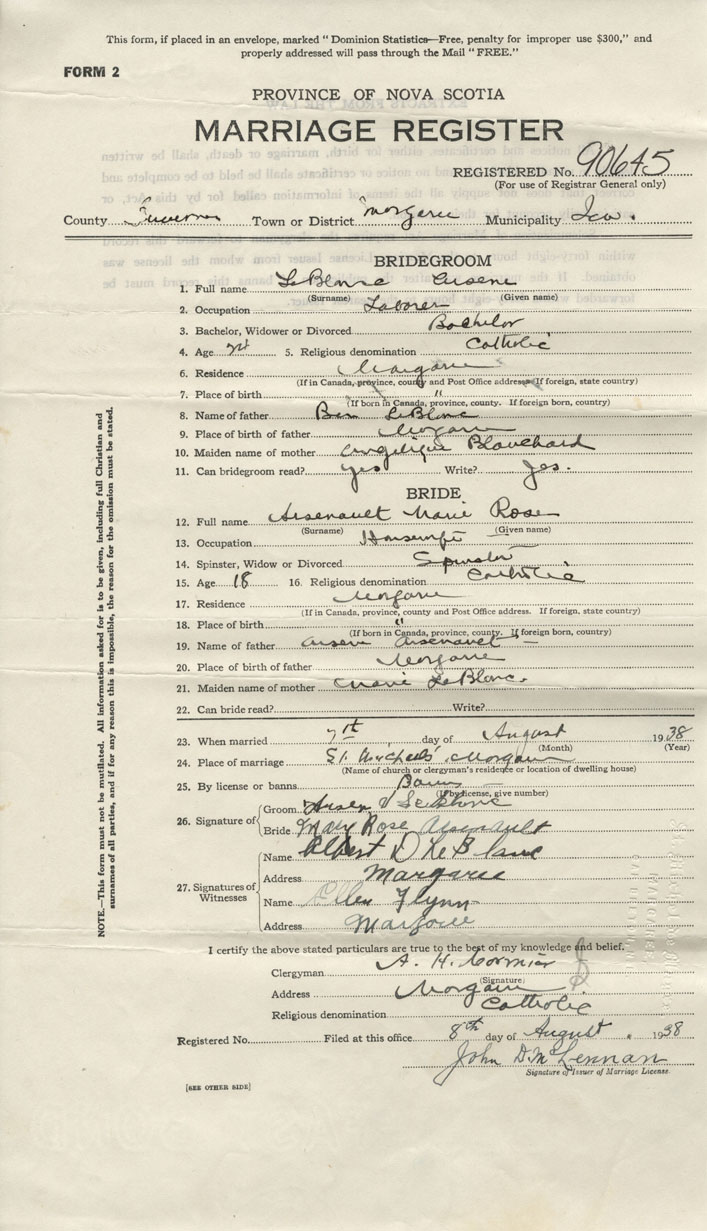 This form, if placed in an envelope, marked "Dominion Statistics—Free, penalty for improper use $300," and
properly addressed will pass through the Mail "FREE."
FORM 2
PROVINCE OF NOVA SCOTIA
MARRIAGE REGISTER
REGISTERED No. 90645
(For use of Registrar General only)
County Inverness Town or District Margaree Municipality Inv.
BRIDEGROOM
1. Full name LeBlanc
(Surname) (Given name)
2. Occupation Laborer
3. Bachelor, Widower or Divorced Bachelor
4. Age 5. Religious denomination Catholic
6. Residence Margaree
(If in Canada, province, county and Post Office address. If foreign, state country)
7. Place of birth "
(If born in Canada, province, county. If foreign born, country)
8. Name of father Ben LeBlanc
9. Place of birth of father Margaree
10. Maiden name of mother Angelique Blanchard
11. Can bridegroom read? yes Write? Yes.
BRIDE
12. Full name Arsenault Marie Rose
(Surname) (Given name)
13. Occupation Housewife
14. Spinster, Widow or Divorced Spinster
15. Age 18 16. Religious denomination Catholic
17. Residence Margaree
(If in Canada, province, county and Post Office address. If foreign, state country)
18. Place of birth "
(If born in Canada, province, county. If foreign born, country)
19. Name of father Arsene Arsenault —
20. Place of birth of father Margaree
21. Maiden name of mother Marie LeBlanc.
22. Can bride read? Write?
23. When married day of August 1938
(Month) (Year)
24. Place of marriage St. Michaels' Margaree
(Name of church or clergyman's residence or location of dwelling house)
25. By license or banns Banns
(If by license, give number)
26. Signature of Groom LeBlanc
Bride Mary Rose Arsenault
27. Signatures of Witnesses
Name Albert D LeBlanc
Address Margaree
Name Ellen Flynn
Address Margaree
I certify the above stated particulars are true to the best of my knowledge and belief.
Clergyman A. H. Cormier
(Signature)
Address Margaree
Religious denomination Catholic
Registered No. Filed at this office 8th day of August 1938
John D. McLennan
Signature of Issuer of Marriage License.
[SEE OTHER SIDE]
NOTE.—This form must not be mutilated. All information asked for is to be given, including full Christian and
surnames of all parties, and if for any reason this is impossible, the reason for the omission must be stated.